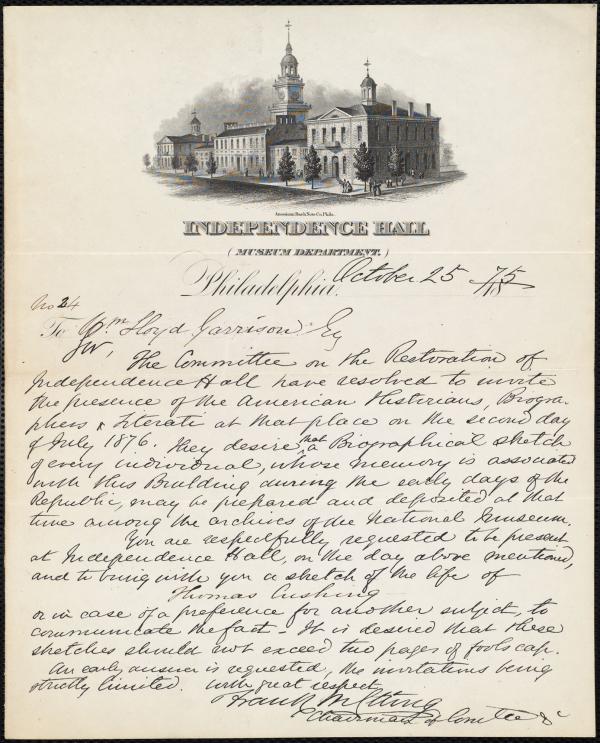 American Bank Note Co. Phila.
INDEPENDENCE HALL
(MUSEUM DEPARTMENT.)
Philadelphia, October 25 1875
No 24
To Wm Lloyd Garrison Esq
Sir,
The Committee on the Restoration of
Independence Hall have resolved to invite
the presence of the American Historians, Biogra-
phers & Literati at that place on the second day
of July 1876. They desire that a Biographical sketch
of every individual, whose memory is associated
with this Building during the early days of the
Republic, may be prepared and deposited at that
time among the archives of the National Museum.
You are respectfully requested to be present
at Independence Hall, on the day above mentioned,
and to bring with you a sketch of the life of
Thomas Cushing
or in case of a preference for another subject, to
communicate the fact - It is desired that these
sketches should not exceed two pages of foolscap.
An early answer is requested, the invitations being
strictly limited. With great respect
Frank M. Etting
Chairman of Comttee &c